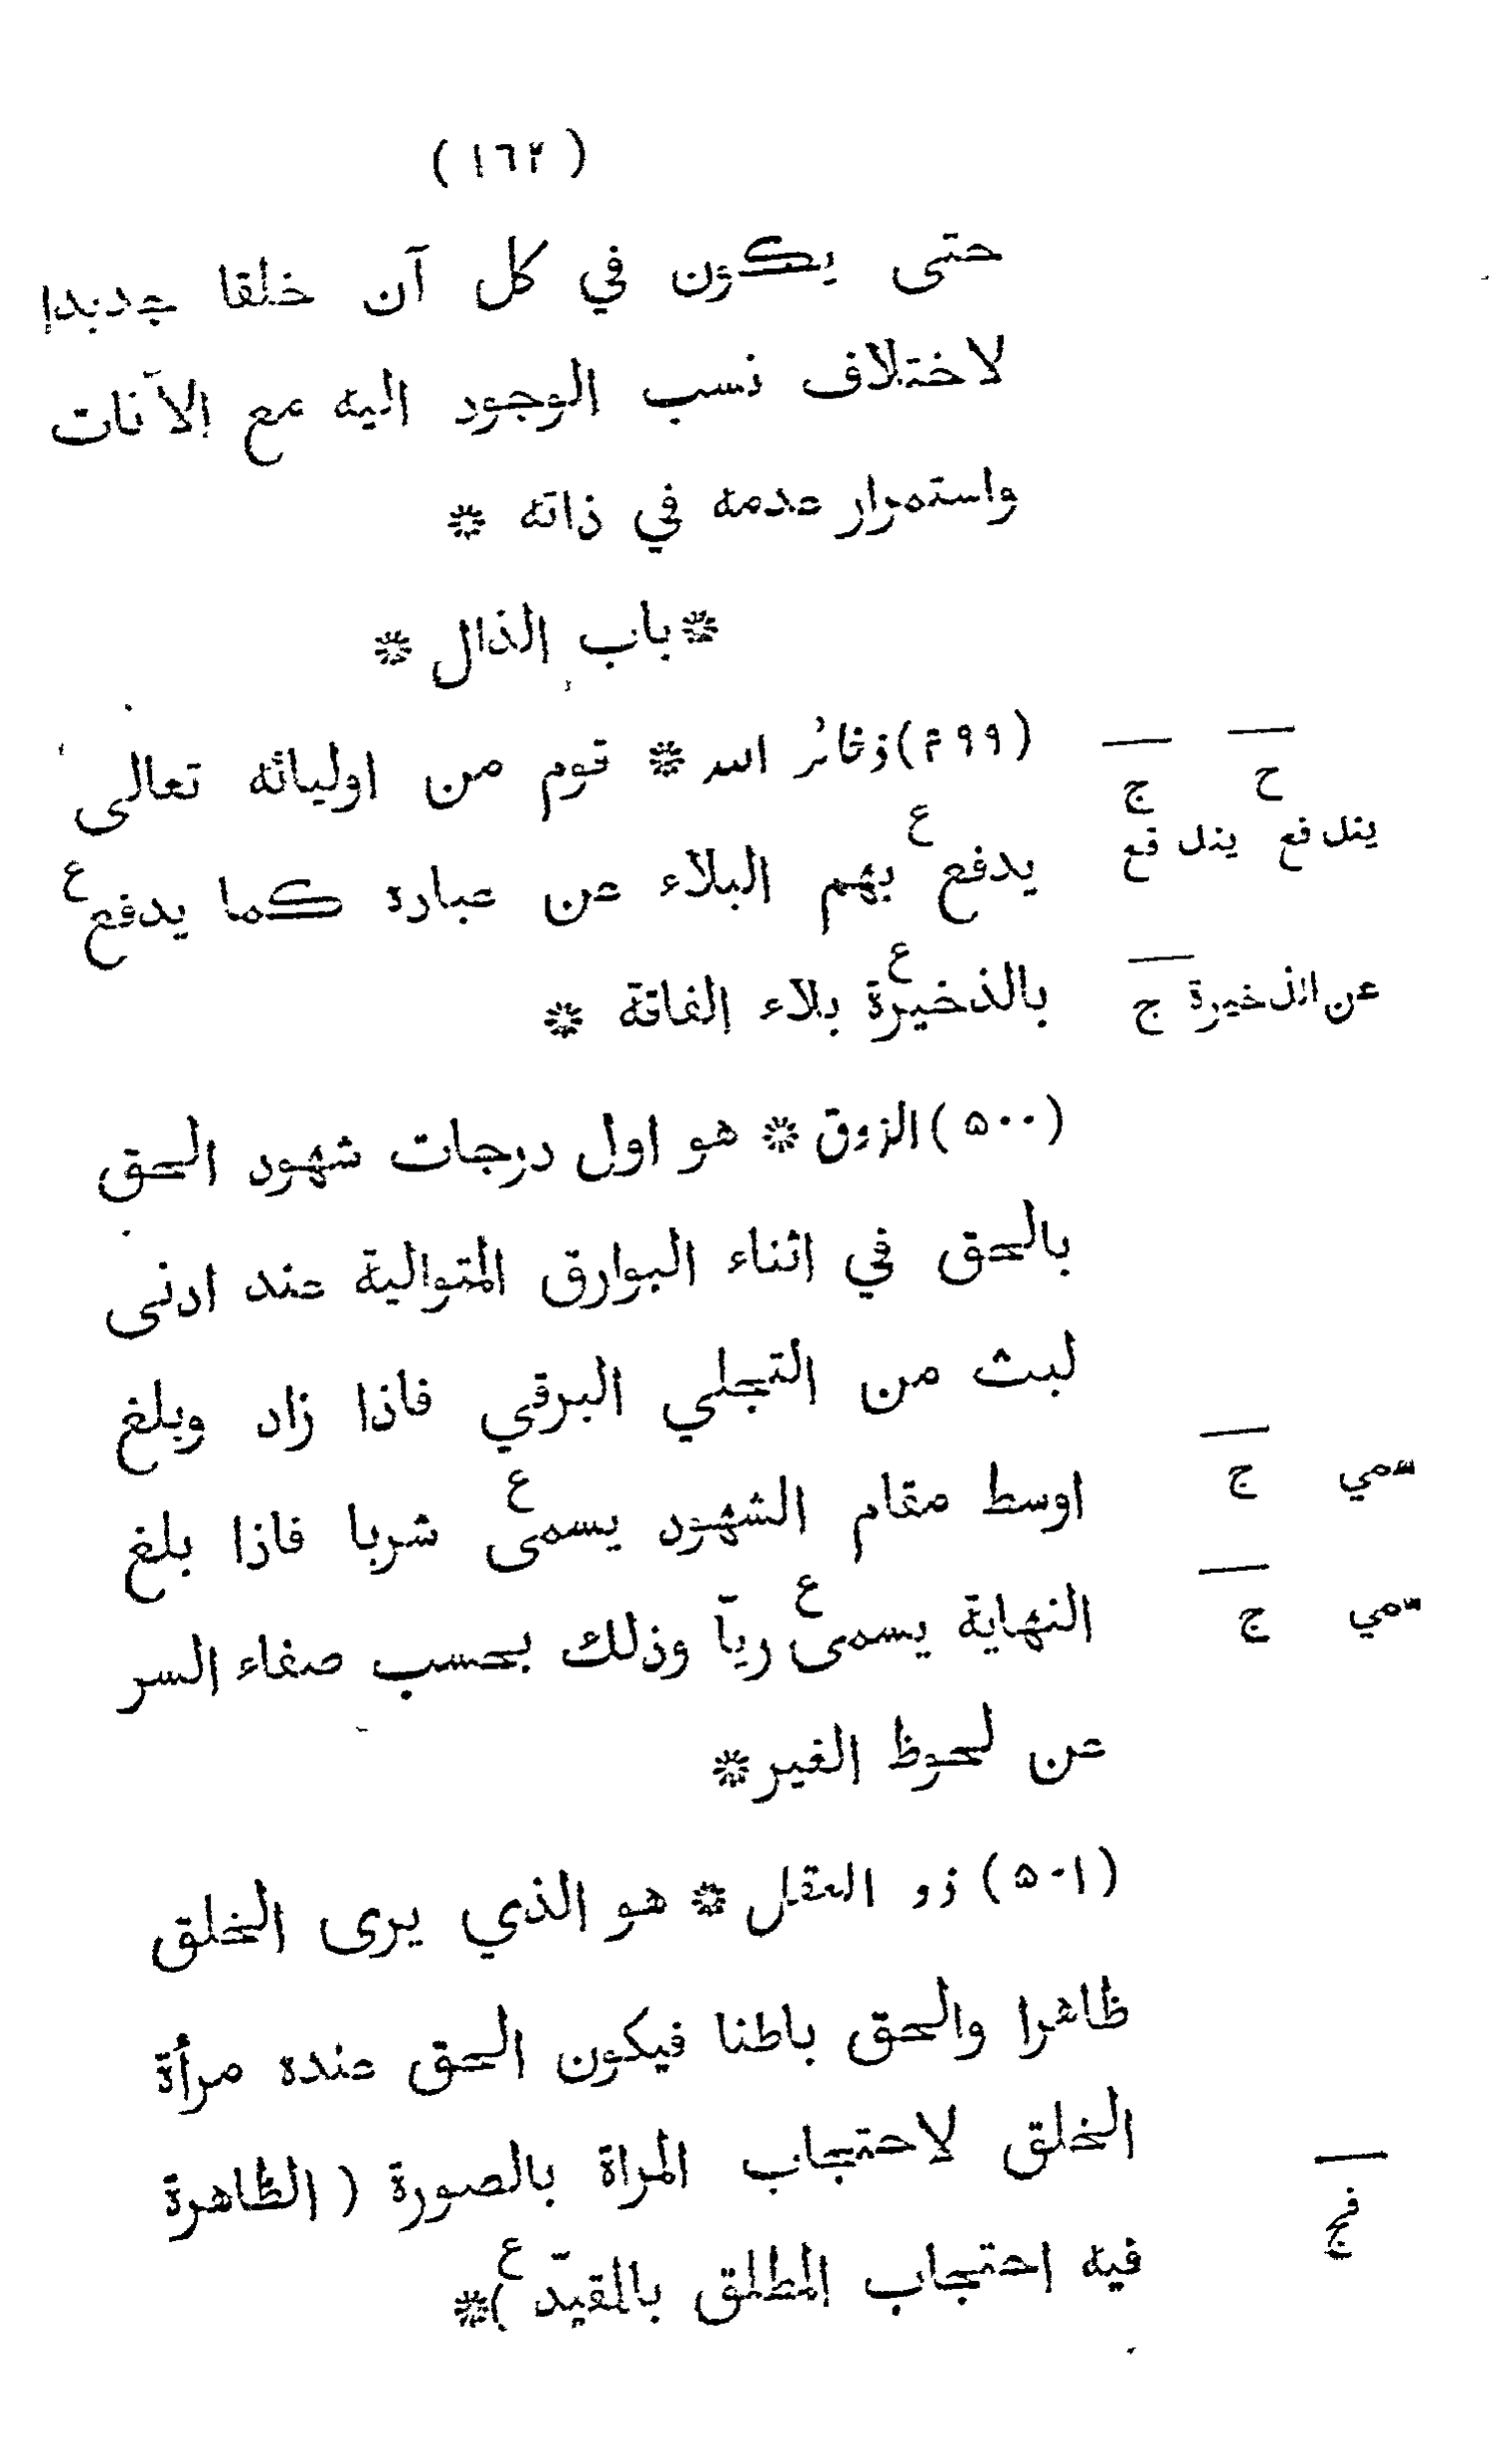 ( ١٦٢ )
حتى يكون في كل آن خلقا جديدا
لاختلاف نسب الوجود اليه مع الآنات
واستمرار عدمه في ذاته *
* باب الذال *
(٤٩٩) ذخائر الله * قوم من اوليائه تعالى
ح ج
يدفع ع بهم البلاء عن عباده كما يدفع ع
يندفع يندفع
بالذخيرة ع بلاء الفاقة *
عن الذخيرة ج
(٥٠٠) الذوق * هو اول درجات شهود الحق
بالحق في اثناء البوارق المتوالية عند ادنى
لبث من التجلي البرقي فاذا زاد وبلغ
اوسط مقام الشهود يسمى ع شربا فاذا بلغ
سمي ج
النهاية يسمى ع ريّا وذلك بحسب صفاء السر
سمي ج
عن لحوظ الغير *
(٥٠١) ذو العقل * هو الذي يرى الخلق
ظاهرا والحق باطنا فيكون الحق عنده مرأة
الخلق لاحتجاب المراة بالصورة ( الظاهرة
فيه احتجاب المطلق بالمقيّد ع ) *